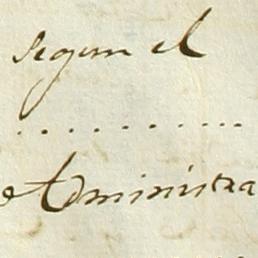 segun el
............
Administra